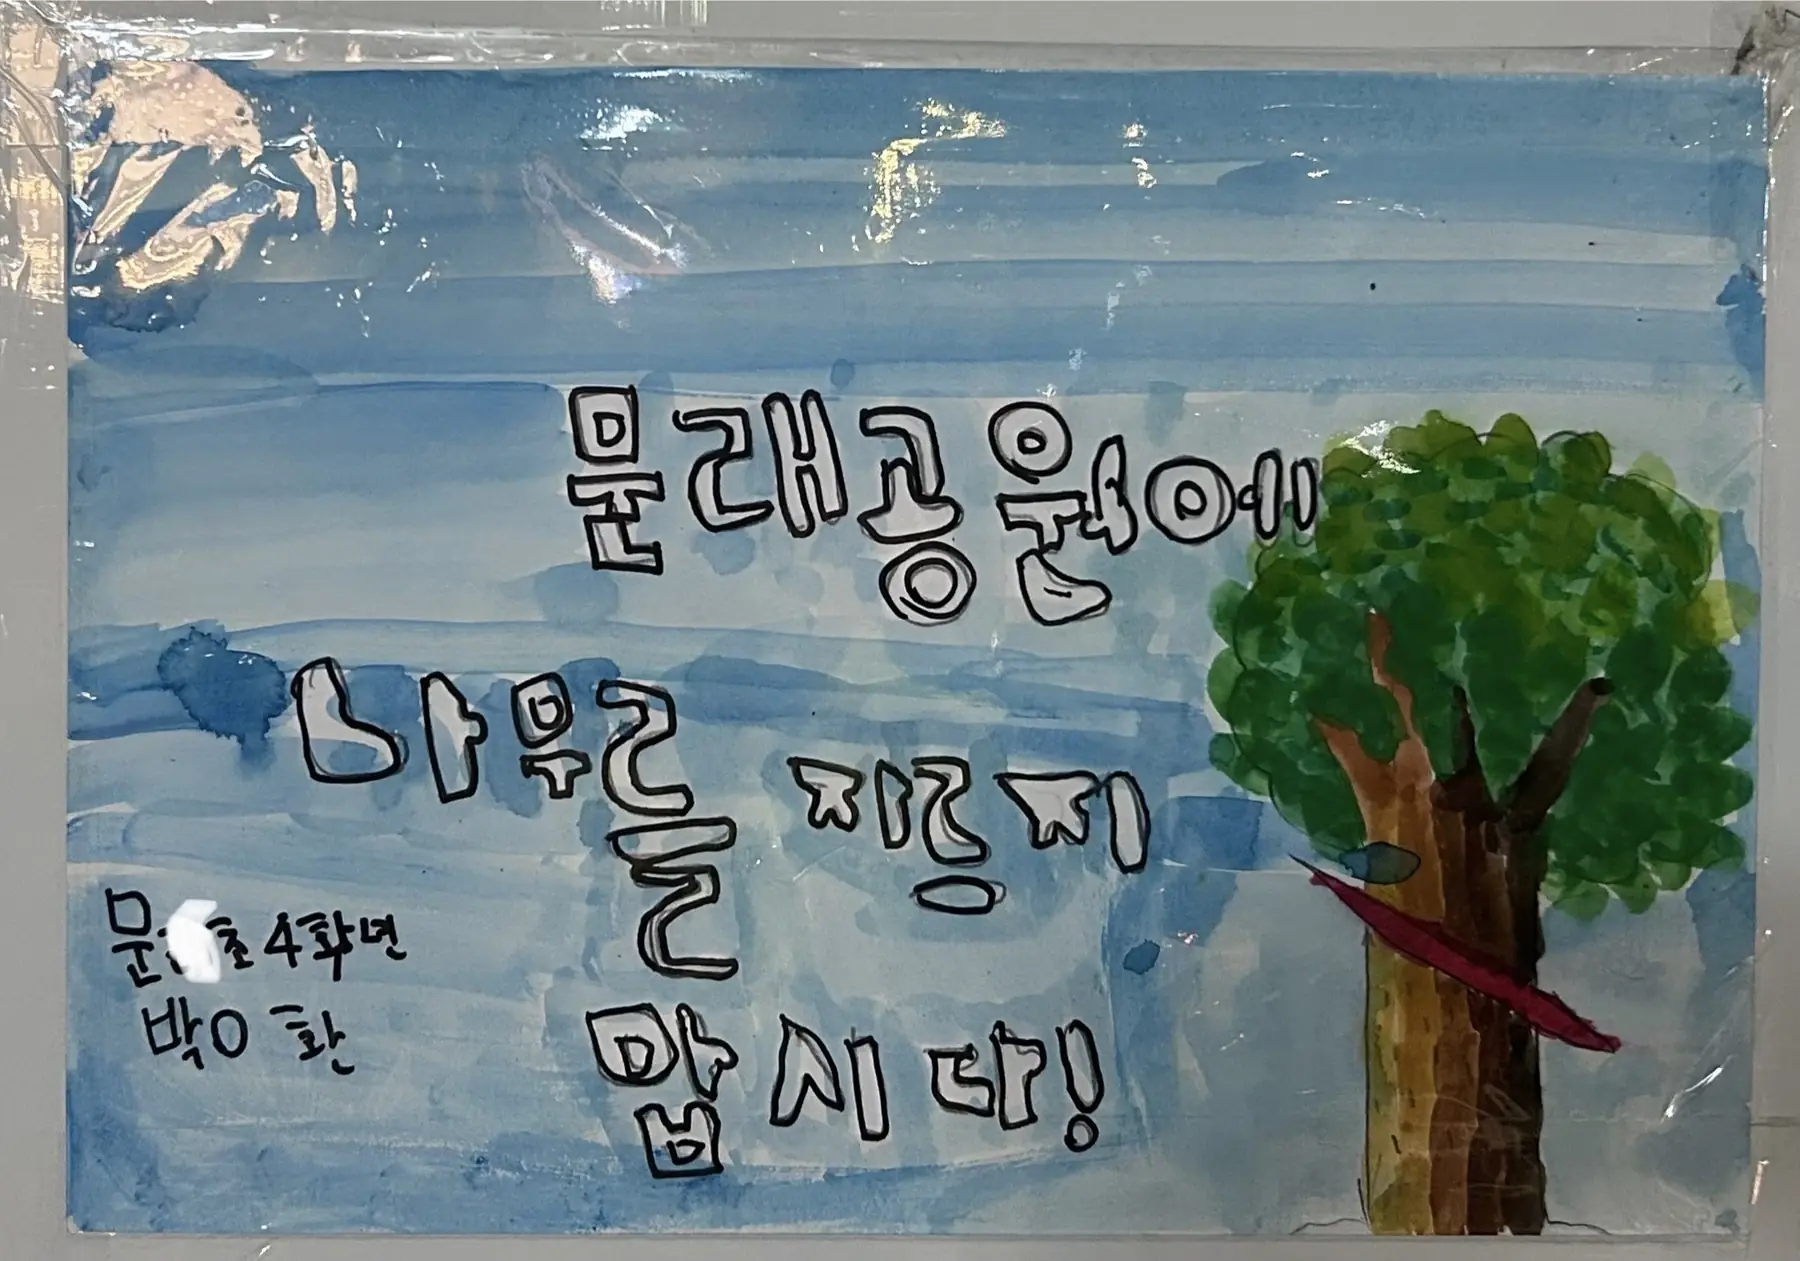 문래공원에
나무를 자르지
맙시다!
초 4학년
박O환